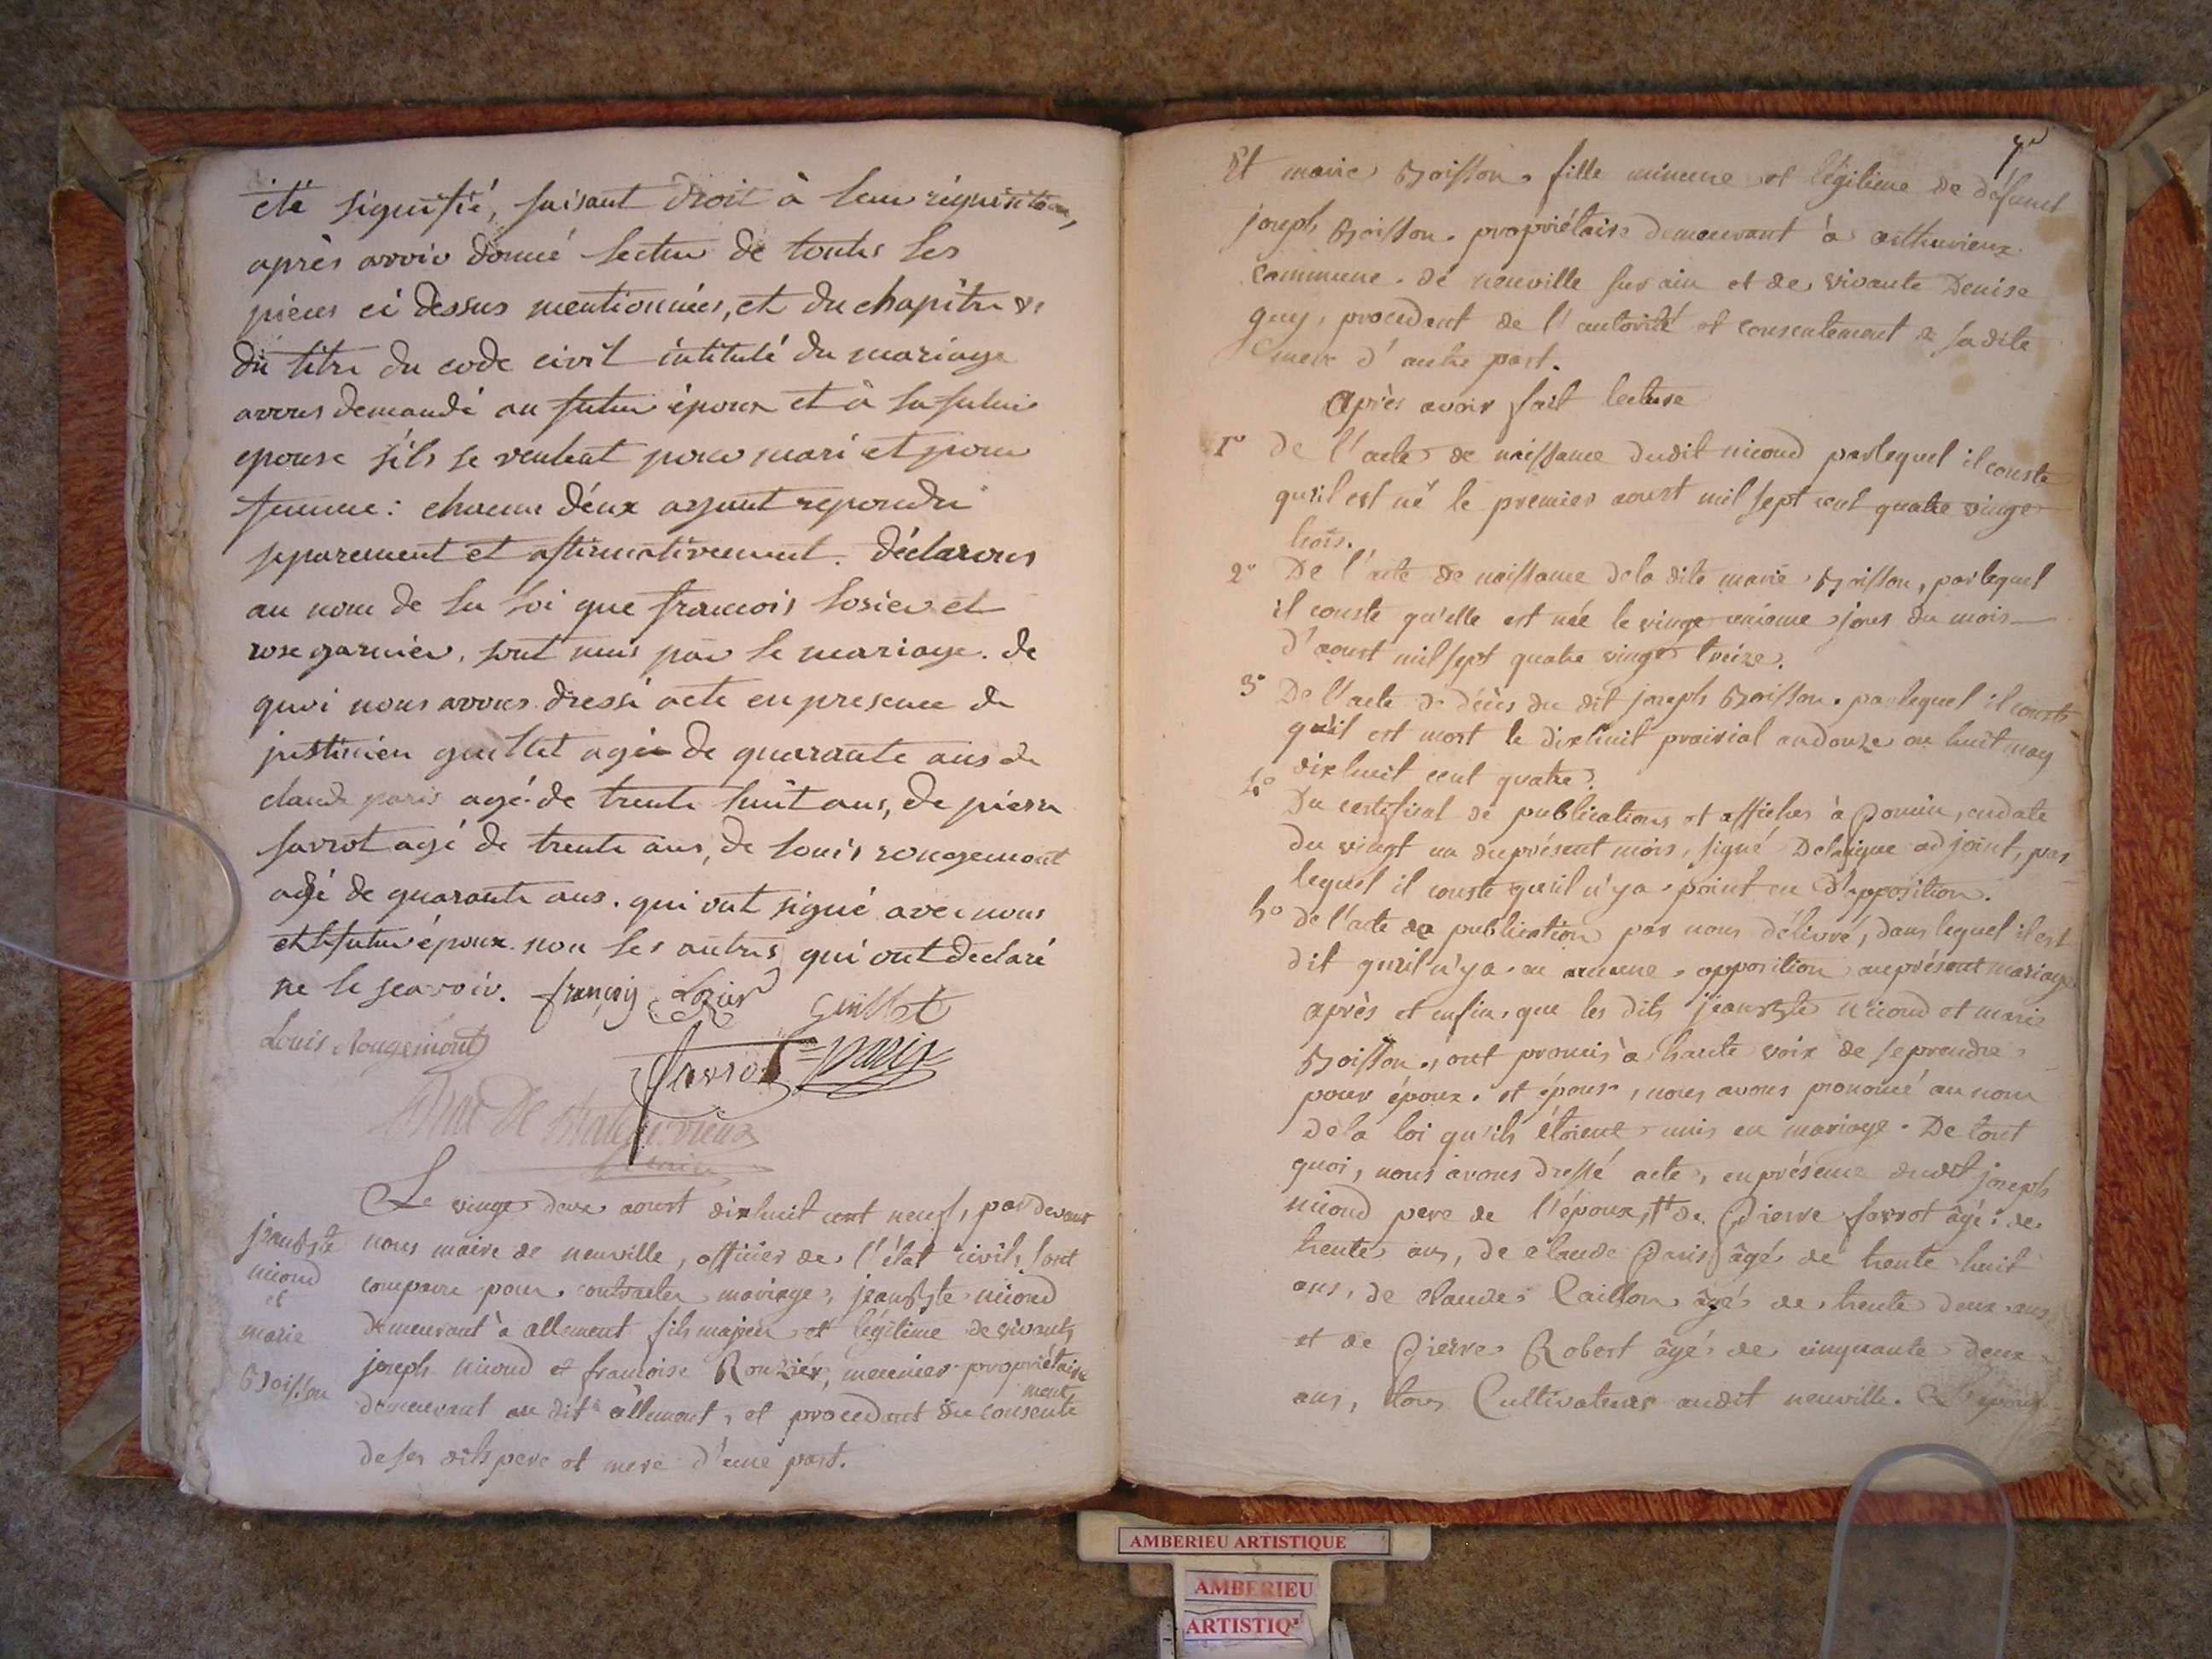 été signifié, faisant droit à leur réquisition,
après avoir donné lecture de toutes les
pièces ci dessus mentionnées, et du chapitre vi
du titre du code civil intitulé du mariage
avons demandé au futur époux et à la future
epouse s'ils se veulent pour mari et pour
femme: chacun d'eux ayant repondu
separement et affirmativement. Déclarons
au nom de la loi que francois losier et
rose garnier, sont unis par le mariage. de
quoi nous avons dressé acte en presence de
justinien guillet agé de quarante ans de
claude paris agé de trente huit ans, de pierre
savrot agé de trente ans, de louis rougemont
agé de quarante ans. qui ont signé avec nous
et le futur époux non les autres qui ont declaré
ne le scavoir. françois Lozier Guillet
Louis Rougemont
Savrot paris
Le vingt deux aoust dixhuit cent neuf, par devant
nous maire de neuville, officier de l'état civil, sont
comparu pour contracter mariage, jean Bte nicoud
demeurant à allement fils majeur et légitime de vivants
joseph nicoud et francoise Rouzier, meunier propriétaire
demeurant au dit allement, et procedant du consente
ment
de ses dits pere et mere d'une part.
jean Bte
nicoud
et
marie
Boisson
Et marie Boisson, fille mineure et légitime de défunct
joseph Boisson, propriétaire demeurant à anthuvieux
commune de neuville sur ain et de vivante Denise
guy, procedant de l'autorité et consentement de sa dite
mere d'autre part.
Après avoir fait lecture
1° De l'acte de naissance dudit nicoud par lequel il conste
qu'il est né le premier aoust mil sept cent quatre vingt
trois.
2° De l'acte de naissance de la dite marie Boisson, par lequel
il conste qu'elle est née le vingt unieme jour du mois
d'aoust mil sept quatre vingt treize.
3° De l'acte de décès du dit joseph Boisson, par lequel il conste
qu'il est mort le dixhuit prairial an douze ou huit may
dixhuit cent quatre.
4° Du certificat de publications et affiches à Poncin, en date
du vingt un du présent mois, signé adjoint, par
lequel il conste qu'il n'y a point eu d'opposition.
5° de l'acte de publication par nous délivré, dans lequel il est
dit qu'il n'y a eu aucune opposition au présent mariage
après et enfin, que les dits jean Bte nicoud et marie
Boisson, ont promis à haute voix de se prendre
pour époux et épouse, nous avons prononcé au nom
de la loi qu'ils étoient unis en mariage. De tout
quoi, nous avons dressé acte, en présence dudit joseph
nicoud pere de l'époux, de Pierre savrot âgé de
trente ans, de claude Paris âgé de trente huit
ans, de claude Caillon âgé de trente deux ans
et de Pierre Robert âgé de cinquante deux
ans, tous Cultivateurs audit neuville. L'époux
AMBERIEU ARTISTIQUE
AMBERIEU
ARTISTIQ